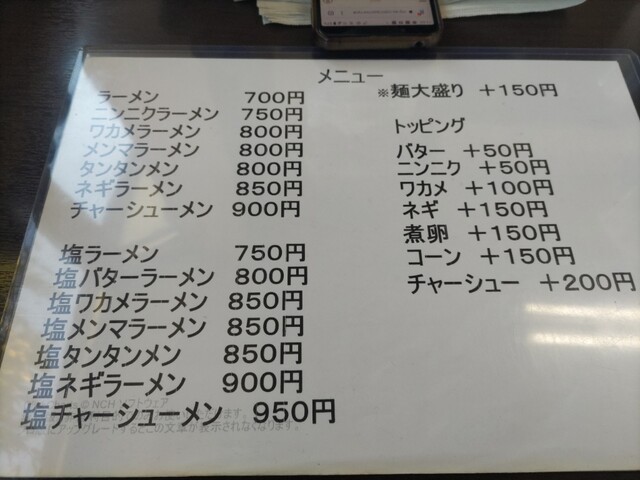 メニュー
ラーメン 700円
ニンニクラーメン 750円
ワカメラーメン 800円
メンマラーメン 800円
タンタンメン 800円
ネギラーメン 850円
チャーシューメン 900円
塩ラーメン 750円
塩バターラーメン 800円
塩ワカメラーメン 850円
塩メンマラーメン 850円
塩タンタンメン 850円
塩ネギラーメン 900円
塩チャーシューメン 950円
※麺大盛り +150円
トッピング
バター +50円
ニンニク +50円
ワカメ +100円
ネギ +150円
煮卵 +150円
コーン +150円
チャーシュー +200円
© NCH ソフトウェア
アップグレードするとこの文章が表示されなくなります。